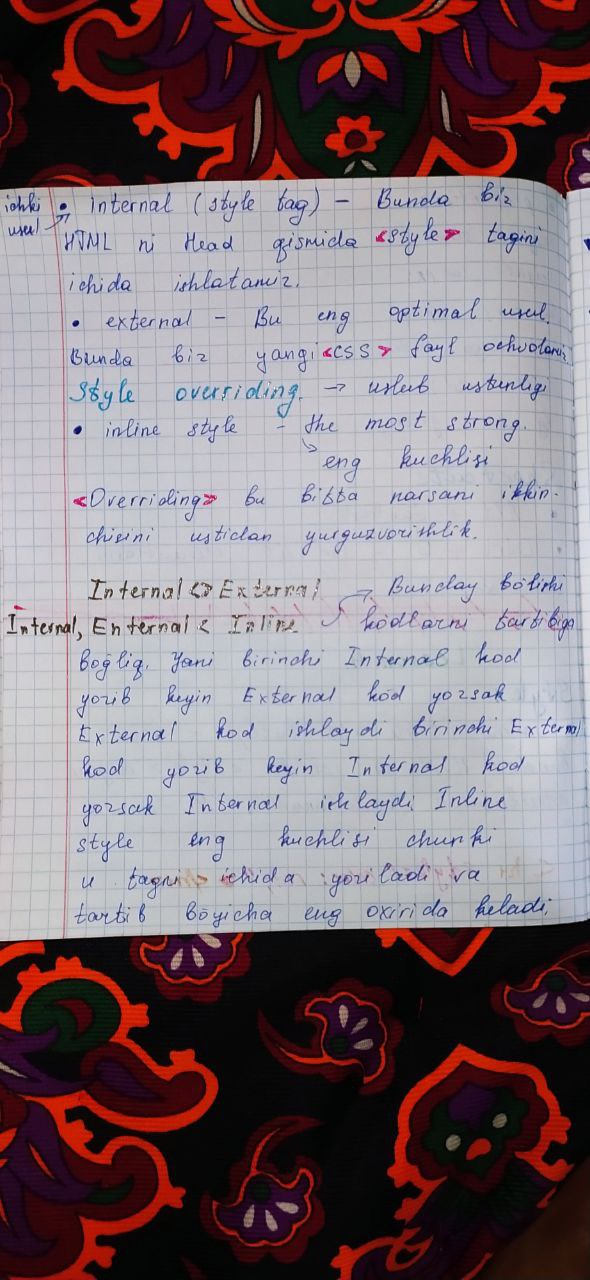 ichki
usul
• internal (style tag) – Bunda biz
HTML ni Head qismida <style> tagini
ichida ishlatamiz.
• external – Bu eng optimal usul.
Bunda biz yangi <css> fayl ochvolamiz
Style overriding. → uslub ustunligi
• inline style – the most strong.
eng kuchlisi
<Overriding> bu bitta narsani ikkin-
chisini ustidan yurguzvorishlik.
Internal <> External
→ Bunday bo'lishi
Internal, External < Inline
kodlarni tartibiga
bog'liq. Yani birinchi Internal kod
yozib keyin External kod yozsak
External kod ishlaydi birinchi External
kod yozib keyin Internal kod
yozsak Internal ishlaydi. Inline
style eng kuchlisi chunki
u tagni ichida yoziladi va
tartib bo'yicha eng oxirida keladi.